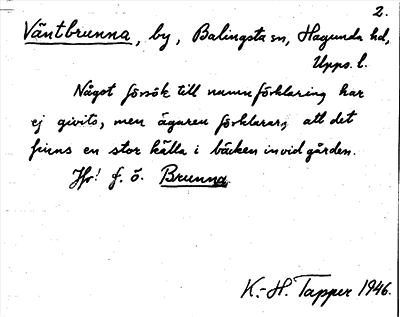 2.
Väntbrunna, by, Balingsta sn, Hagunda hd,
Upps. l.
Något försök till namnförklaring har
ej givits, men ägaren förklarar, att det
finns en stor källa i bäcken invid gården.
Jfr! f. ö. Brunna
K.-H. Tapper 1946.